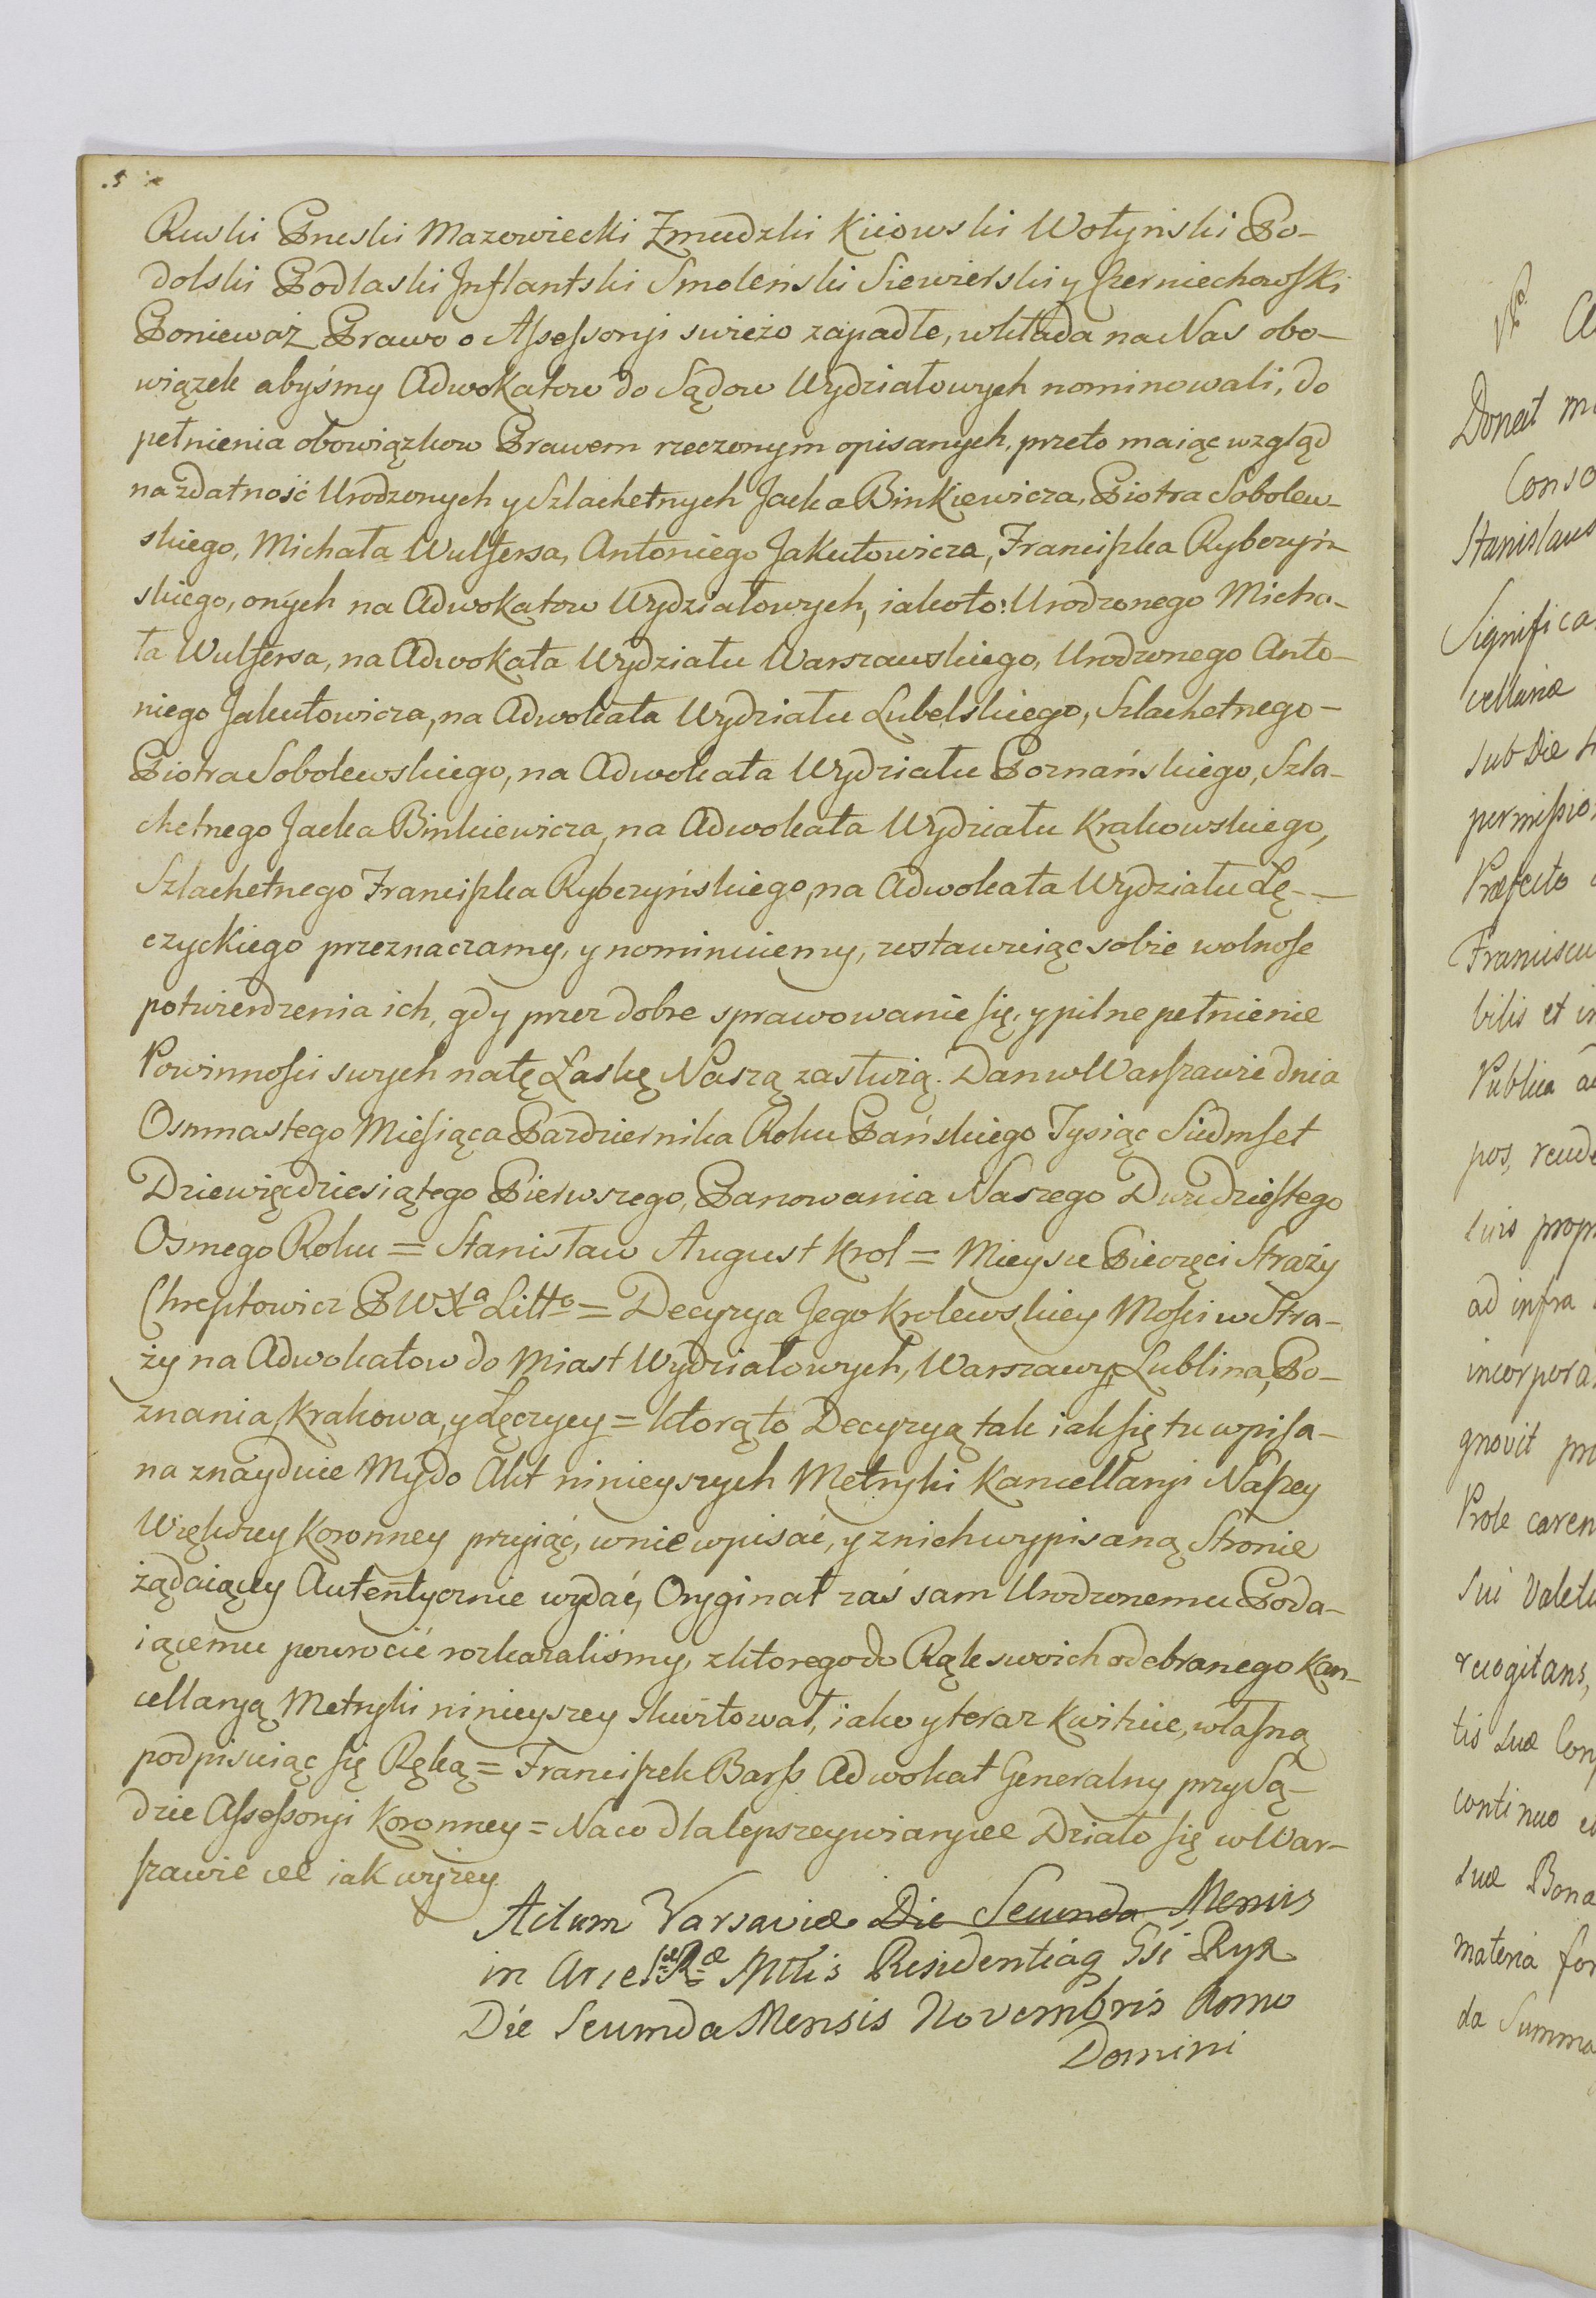 Ruski Pruski Mazowiecki Zmudzki Kiiowski Wołyński Po-
dolski Podlaski Inflantski Smoleński Siewierski y Czerniechowski
Ponieważ Prawo o Assessoryi swieżo zapadłe, wkłada na Nas obo-
wiązek abyśmy Adwokatow do Sądow Wydziałowych nominowali, do
pełnienia obowiązkow Prawem rzeczonym opisanych, przeto maiąc wzgląd
na zdatność Urodzonych y Szlachetnych Jacka Binkiewicza, Piotra Sobolew-
skiego, Michała Wulfersa, Antoniego Jakutowicza, Franciszka Rybczyń-
skiego, onych na Adwokatow Wydziałowych, iakoto: Urodzonego Micha-
ła Wulfersa, na Adwokata Wydziału Warszawskiego, Urodzonego Anto-
niego Jakutowicza, na Adwokata Wydziału Lubelskiego, Szlachetnego-
Piotra Sobolewskiego, na Adwokata Wydziału Poznańskiego, Szla-
chetnego Jacka Binkiewicza, na Adwokata Wydziału Krakowskiego,
Szlachetnego Franciszka Rybczyńskiego, na Adwokata Wydziału Łę-
czyckiego przeznaczamy, y nominuiemy, zostawuiąc sobie wolnośc
potwierdzenia ich, gdy przez dobre sprawowanie się, y pilne pełnienie
Powinności swych na tę Łaskę Naszą zasłużą. Dan w Warszawie dnia
Osmnastego Miesiąca Pazdziernika Roku Pańskiego Tysiąc Siedmset
Dziewięcdziesiątego Pierwszego, Panowania Naszego Dwudziestego
Osmego Roku = Stanisław August Krol = Mieysce Pieczęci Straży
Chreptowicz P W X<sup>a</sup> Litt<sup>o</sup> = Decyzya Jego Krolewskiey Mości w Stra-
ży na Adwokatow do Miast Wydziałowych, Warszawy, Lublina, Po-
znania, Krakowa, y Łęczycy = którąto Decyzyą tak iak się tu wpisa-
na znayduie My do Akt ninieyszych Metryki Kancellaryi Naszey
Większey Koronney przyiąć, w nie wpisać, y z nich wypisaną Stronie
żądaiącey Autentycznie wydać, Oryginał zaś sam Urodzonemu Poda-
iącemu powrocić rozkazaliśmy, z ktorego do Rąk swoich odebranego Kan-
cellaryą Metryki ninieyszey skwitował, iako y teraz kwituie, własną
podpisuiąc się Ręką = Franciszek Barss Adwokat Generalny przy Są-
dzie Assessoryi Koronney = Na co dla lepszey wiary &c Działo się w War-
szawie &c iak wyżey
Actum Varsaviæ Die Secunda Mensis
in Arce S<sup>æ</sup> R<sup>æ</sup> Mttis Residentiaq Gsi Ryx
Die Secunda Mensis Novembris Anno
Domini
Donat
Conso
Stanislaus
Significa
cellariæ
sub Die
permissio
Præfecto
Franciscu
bilis et in
Publica
pos,
suis propr
ad infra
incorpora
gnovit
Prole caren
sui Valetu
recogitans,
tis suæ
continuo
suæ Bona
materia for
da Summa